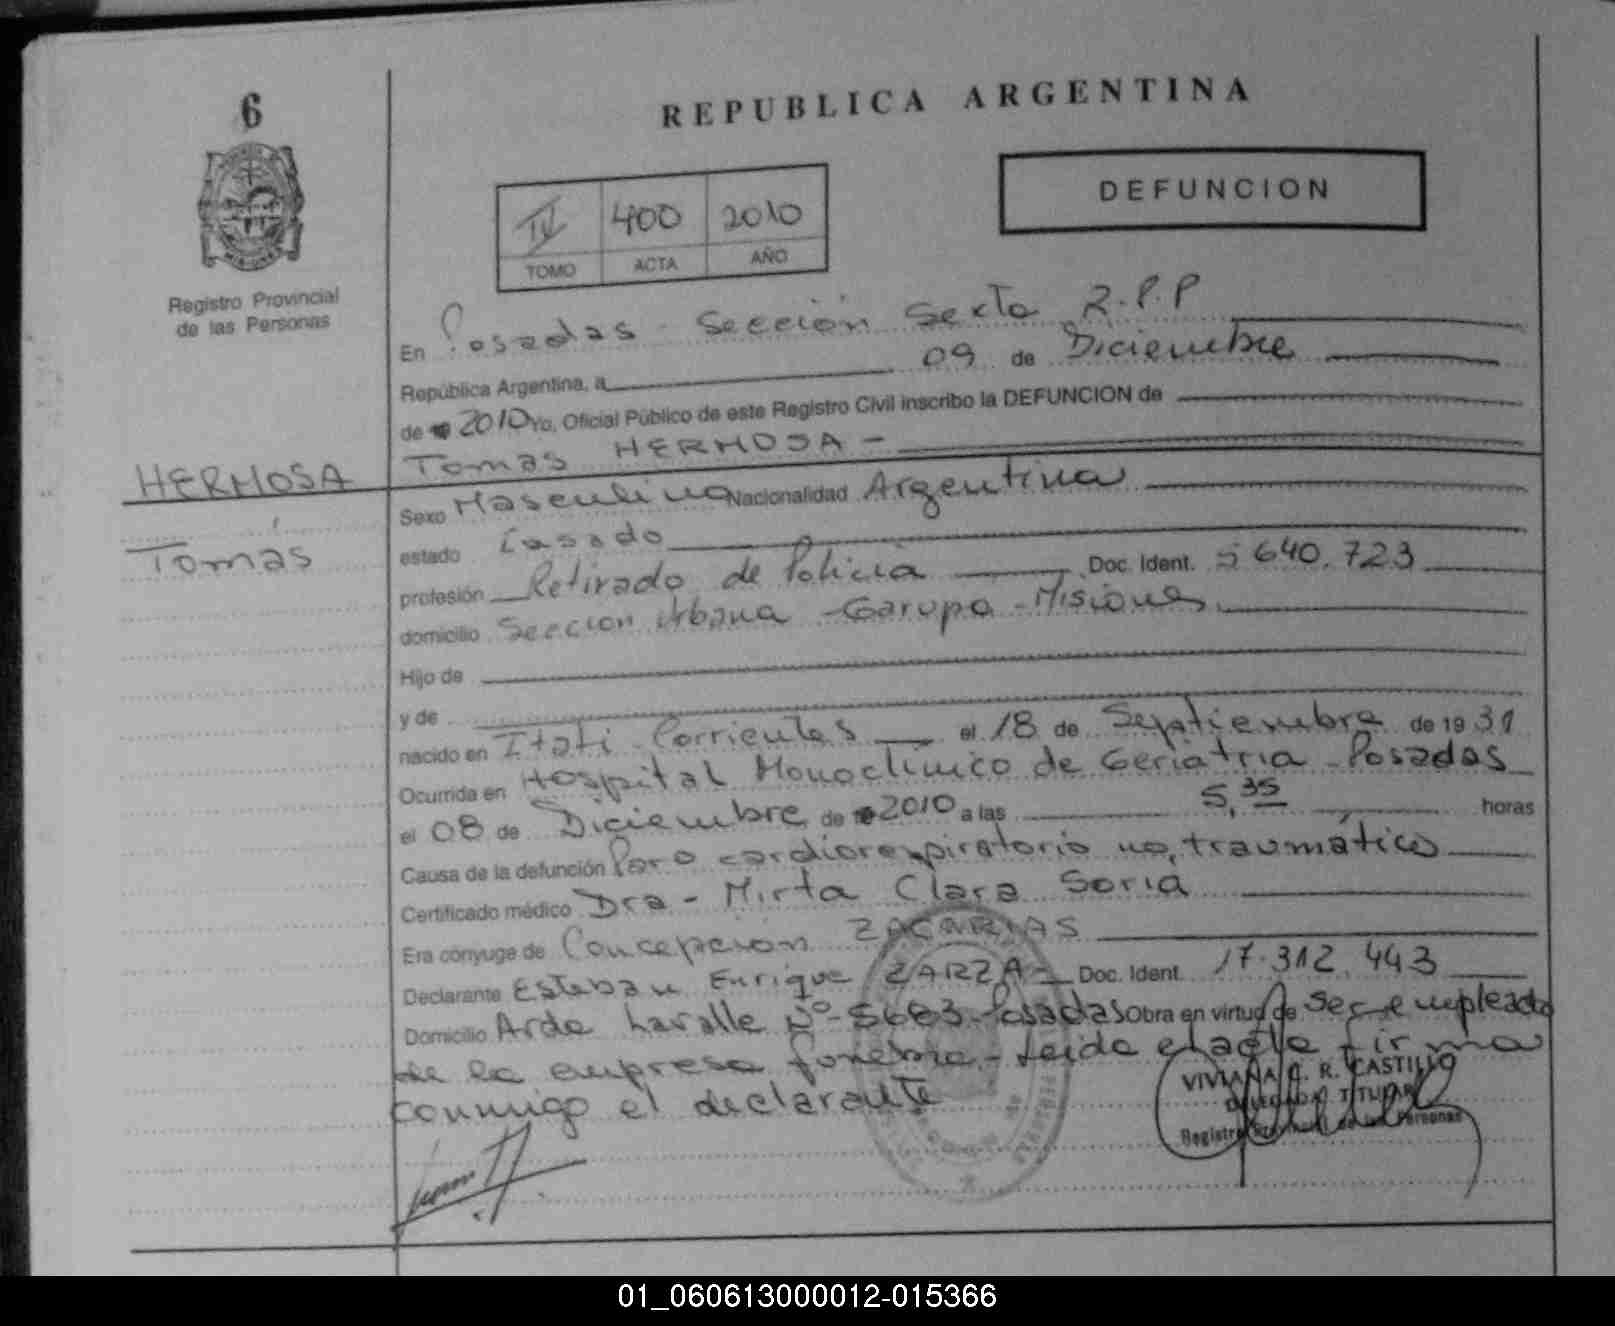 6
REPUBLICA ARGENTINA
DEFUNCION
IV 400 2010
TOMO ACTA AÑO
Registro Provincial
de las Personas
En Posadas - Sección Sexta R.P.P
República Argentina, a 09 de Diciembre
de 2010 Yo, Oficial Público de este Registro Civil inscribo la DEFUNCION de
Tomas HERMOSA -
HERMOSA
Tomás
Sexo Masculino Nacionalidad Argentina
estado Casado
profesión Retirado de Policia Doc. Ident. 5 640.723
domicilio Seccion Urbana - Garupa - Misiones
Hijo de
y de
nacido en Itati Corrientes el 18 de Septiembre de 1931
Ocurrida en Hospital Monoclinico de Geriatria - Posadas
el 08 de Diciembre de 2010 a las 5,35 horas
Causa de la defunción Paro cardiorespiratorio no traumático
Certificado médico Dra - Mirta Clara Soria
Era cónyuge de Concepción ZACARIAS
Declarante Esteban Enrique ZARZA - Doc. Ident. 17.312.443
Domicilio Avda Lavalle Nº 5683 - Posadas Obra en virtud de Ser empleado
de la empresa funebre - Leida el acta firma
conmigo el declarante
VIVIANA R. CASTILLO
DELEGADA TITULAR
Registro Provincial de las Personas
01_060613000012-015366